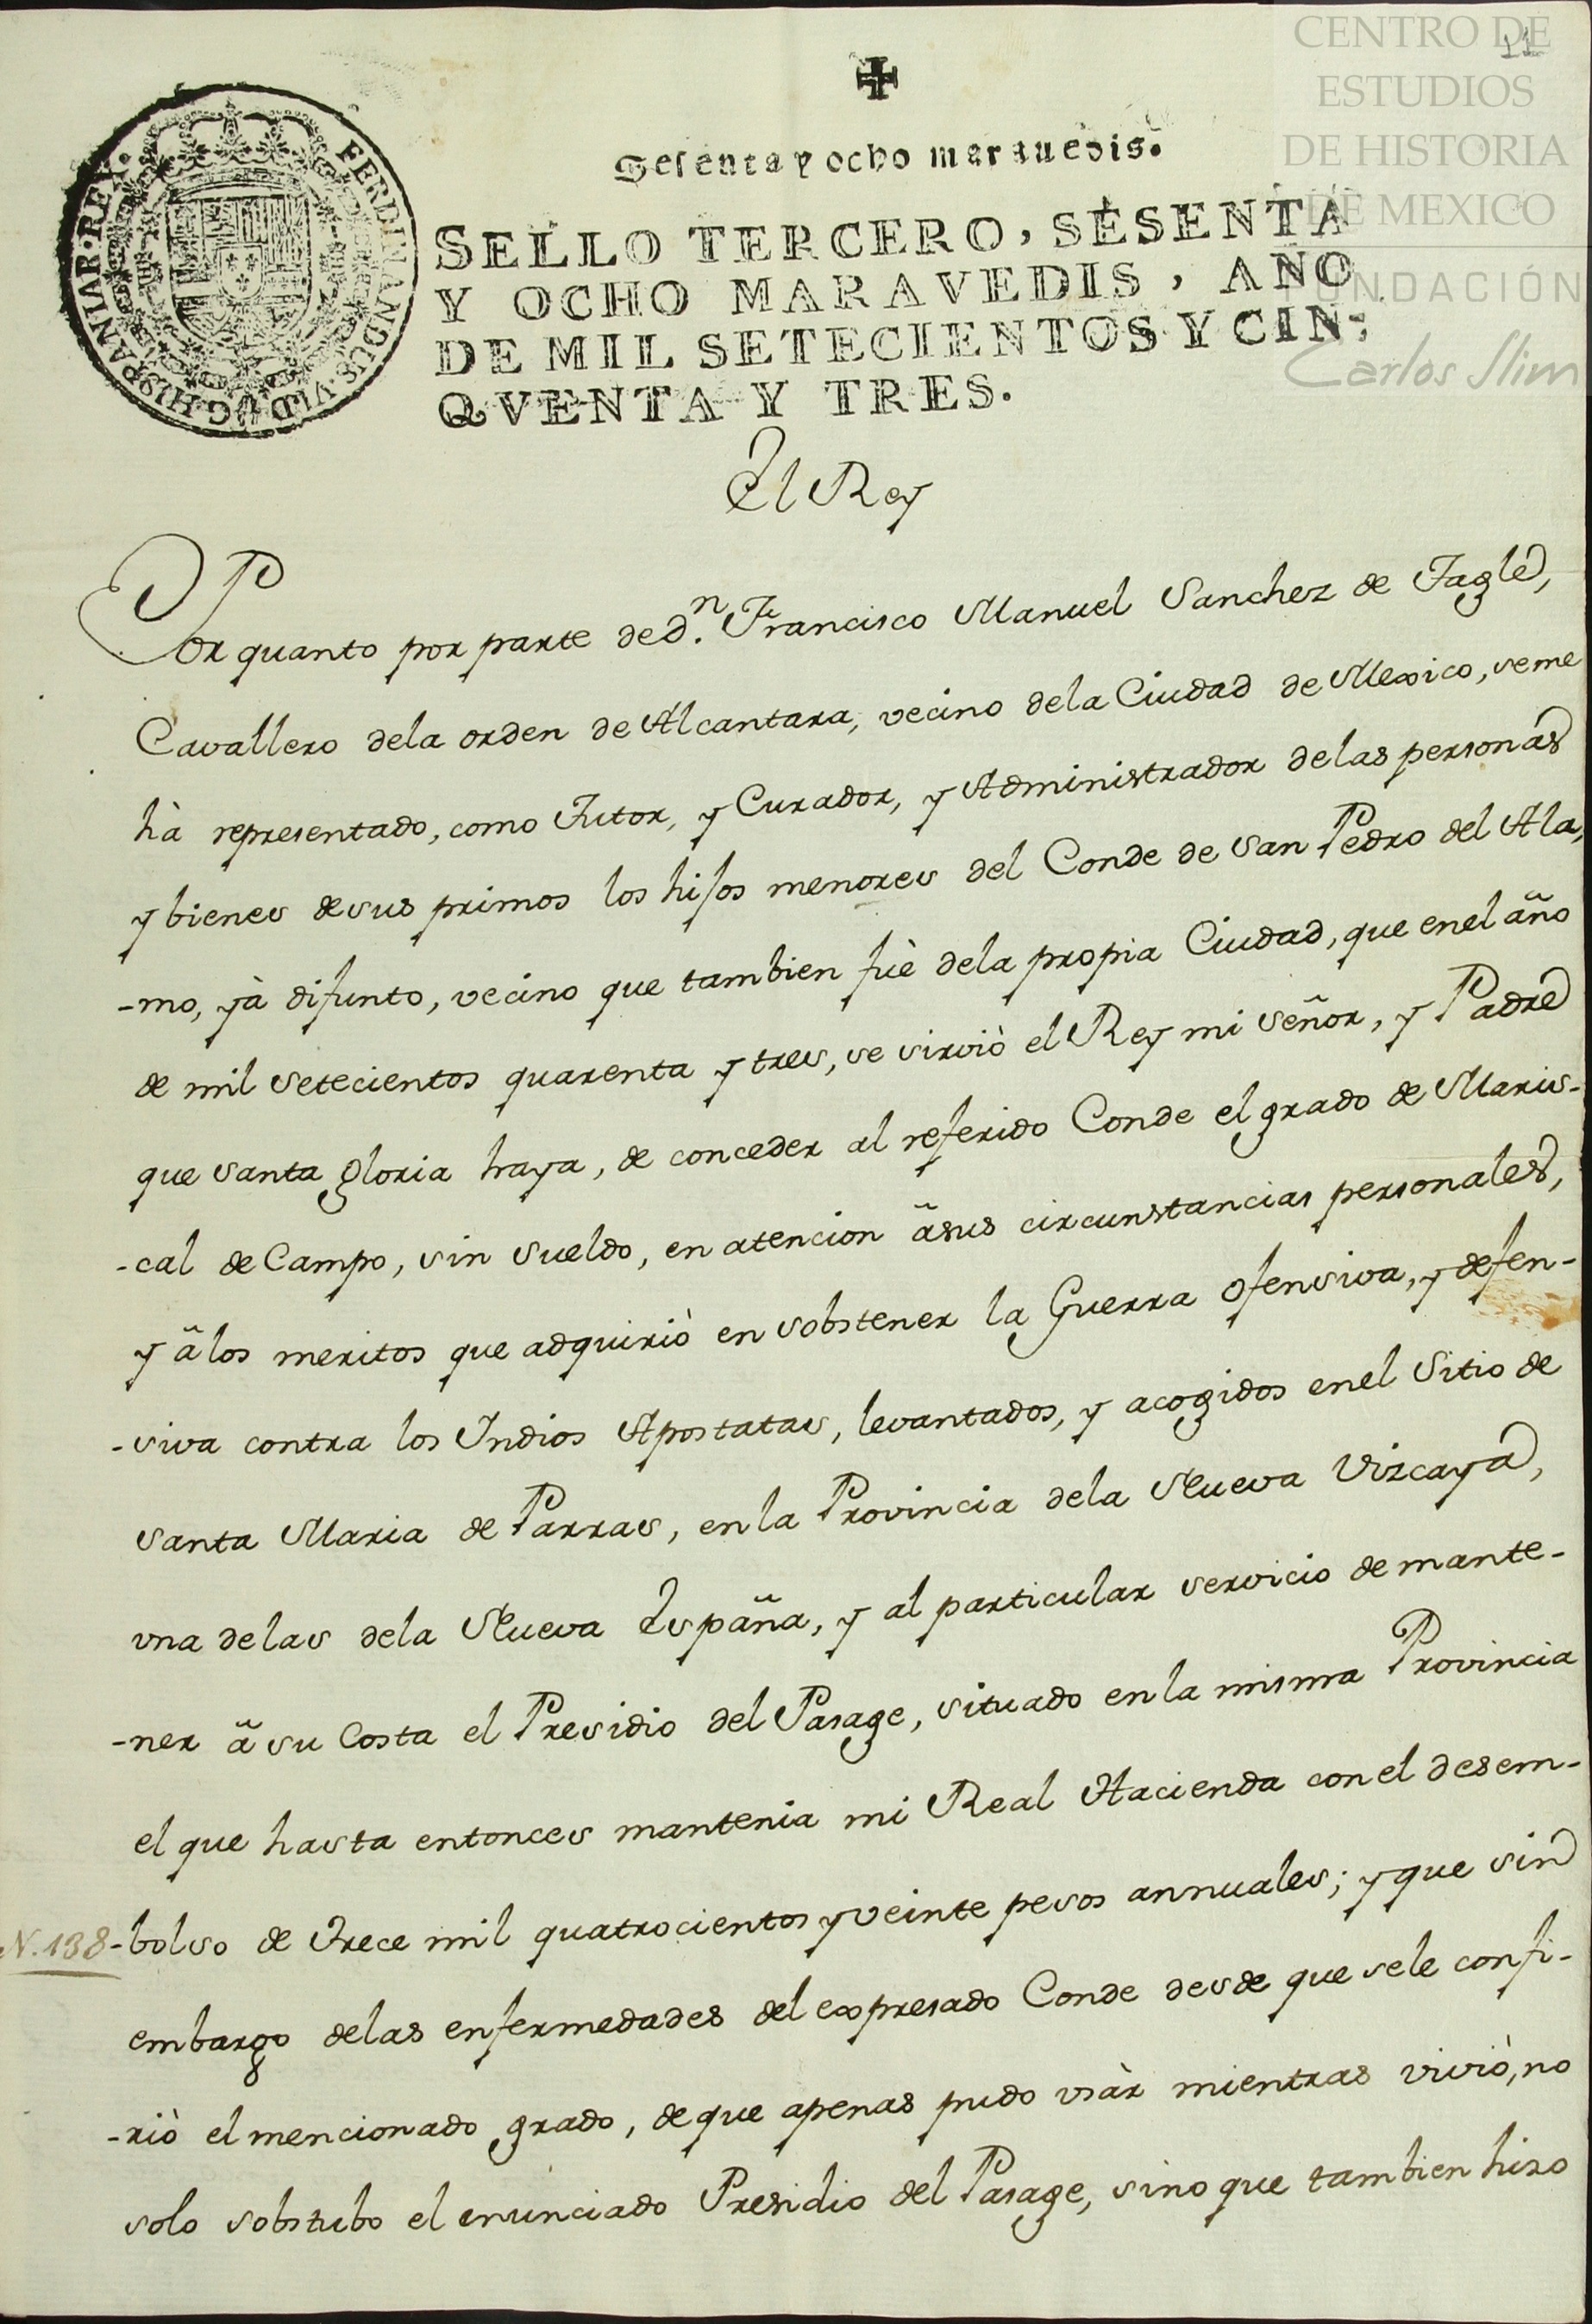 CENTRO DE
ESTUDIOS
DE HISTORIA
DE MEXICO
FUNDACIÓN
Carlos Slim
11
Sesenta y ocho marauedis.
FERDINANDUS·VI·D·G·HISPANIAR·REX·
SELLO TERCERO, SESENTA
Y OCHO MARAVEDIS, AÑO
DE MIL SETECIENTOS Y CIN-
QVENTA Y TRES.
El Rey
Por quanto por parte de d.n Francisco Manuel Sanchez de Tagle,
Cavallero dela orden de Alcantara, vecino dela Ciudad de Mexico, seme
hà representado, como Tutor, y Curador, y Administrador delas personas
y bienes desus primos los hijos menores del Conde de San Pedro del Ala,
-mo, yà difunto, vecino que tambien fuè dela propia Ciudad, que enel año
de mil setecientos quarenta y tres, se sirviò el Rey mi señor, y Padre
que santa gloria haya, de conceder al referido Conde el grado de Maris-
-cal de Campo, sin sueldo, en atencion ã sus circunstancias personales,
y ã los meritos que adquiriò en sobstener la Guerra ofensiva, y defen-
-siva contra los Indios Apostatas, levantados, y acogidos enel Sitio de
Santa Maria de Parras, en la Provincia dela Nueva Vizcaya,
vna delas dela Nueva España, y al particular servicio de mante-
-ner ã su Costa el Presidio del Pasage, situado en la misma Provincia
el que hasta entonces mantenia mi Real Hacienda con el desem-
N. 138 -bolso de Trece mil quatrocientos y veinte pesos annuales; y que sin
embargo delas enfermedades del expresado Conde desde que sele confi-
-riò el mencionado grado, de que apenas pudo vsàr mientras viviò, no
solo sobstubo el enunciado Presidio del Pasage, sino que tambien hizo